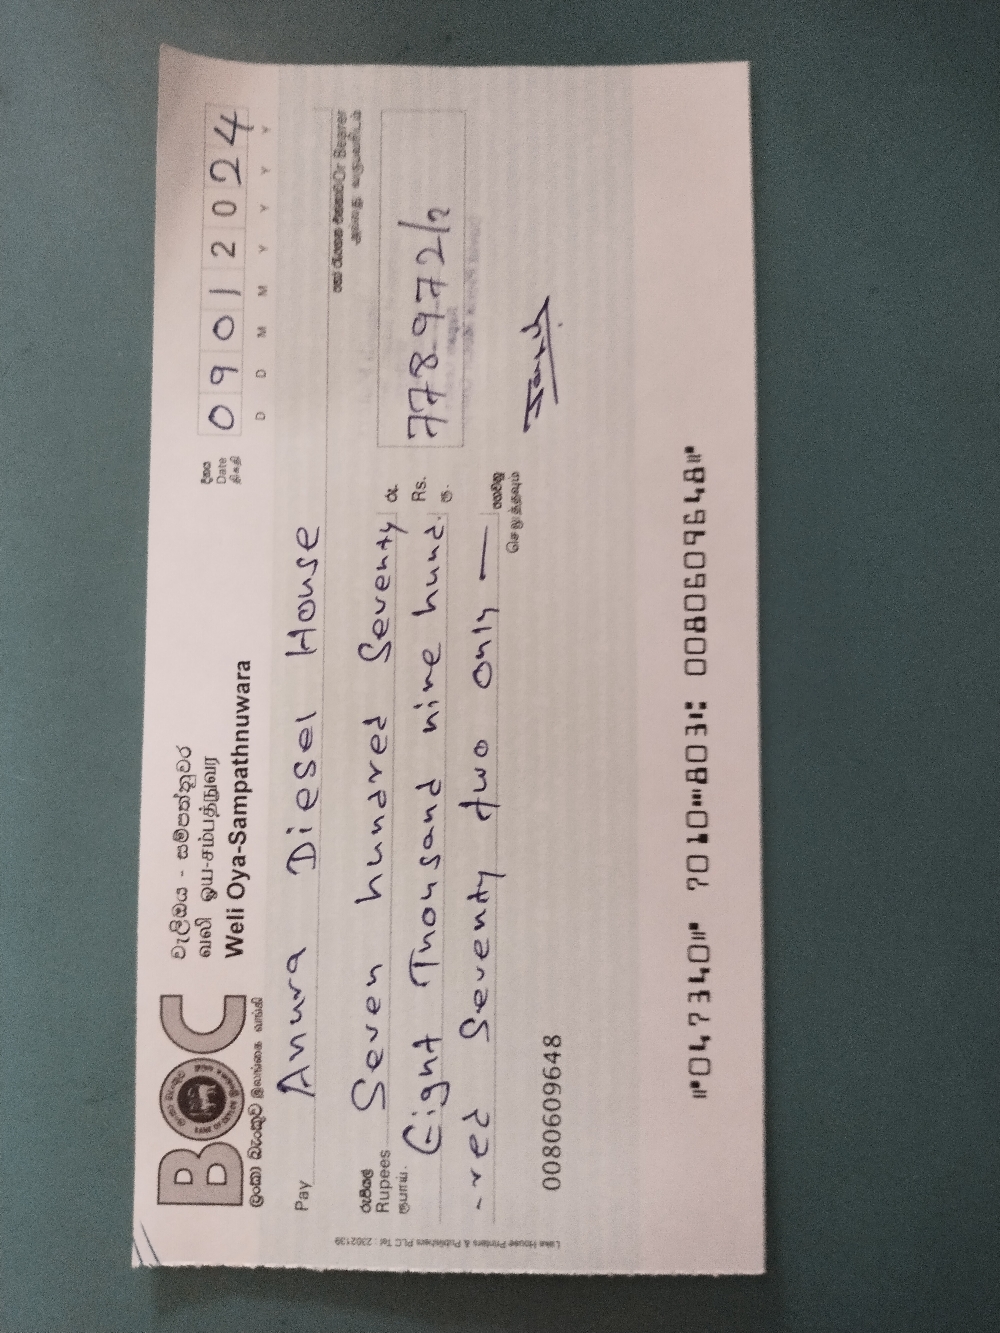 BOC
ලංකා බැංකුව இலங்கை வங்கி
වැලිඔය - සම්පත්නුවර
வலி ஓயா-சம்பத்நுவர
Weli Oya-Sampathnuwara
දිනය
Date
திகதி
0 9 0 1 2 0 2 4
D D M M Y Y Y Y
Pay Anura Diesel House
හෝ රැගෙන එන්නාට Or Bearer
அல்லது வருபவரிடம்
රුපියල්
Rupees
ரூபாய்.
Seven hundred Seventy
Eight Thousand nine hund.
-red Seventy two only —
රු.
Rs.
ரூ.
778972/2
ගෙවනු
செலுத்தவும்
0080609648
Lake House Printers & Publishers PLC Tel : 2302139
⑈047340⑈ 7010⑉803⑆ 0080609648⑈